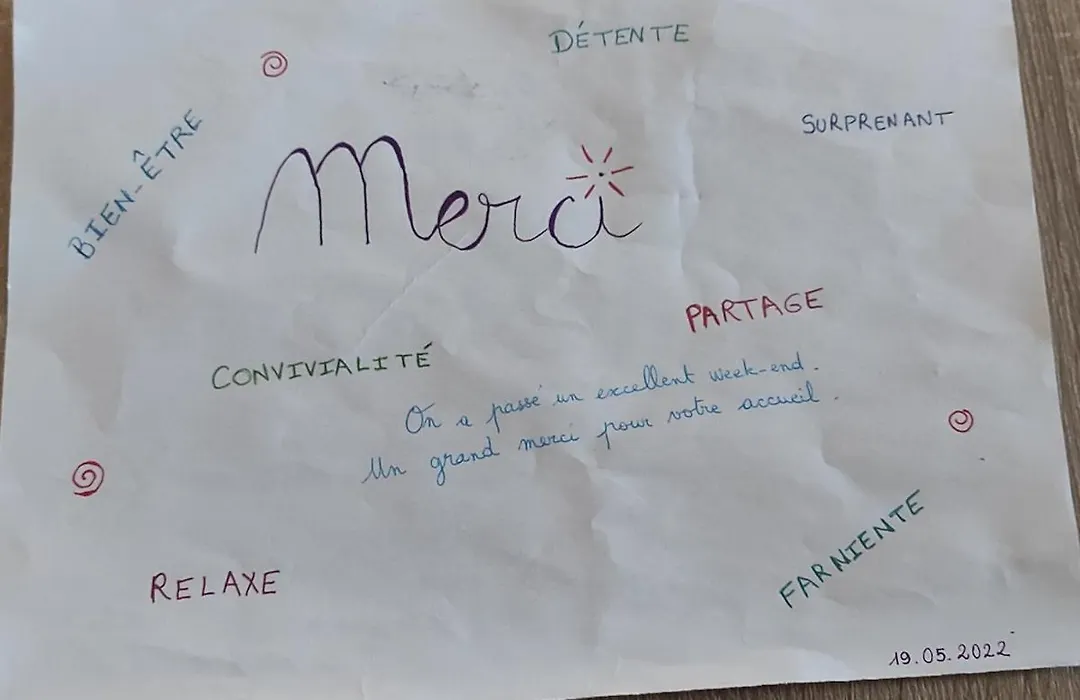 DÉTENTE
SURPRENANT
BIEN-ÊTRE
Merci
PARTAGE
CONVIVIALITÉ
On a passé un excellent week-end.
Un grand merci pour votre accueil.
FARNIENTE
RELAXE
19.05.2022